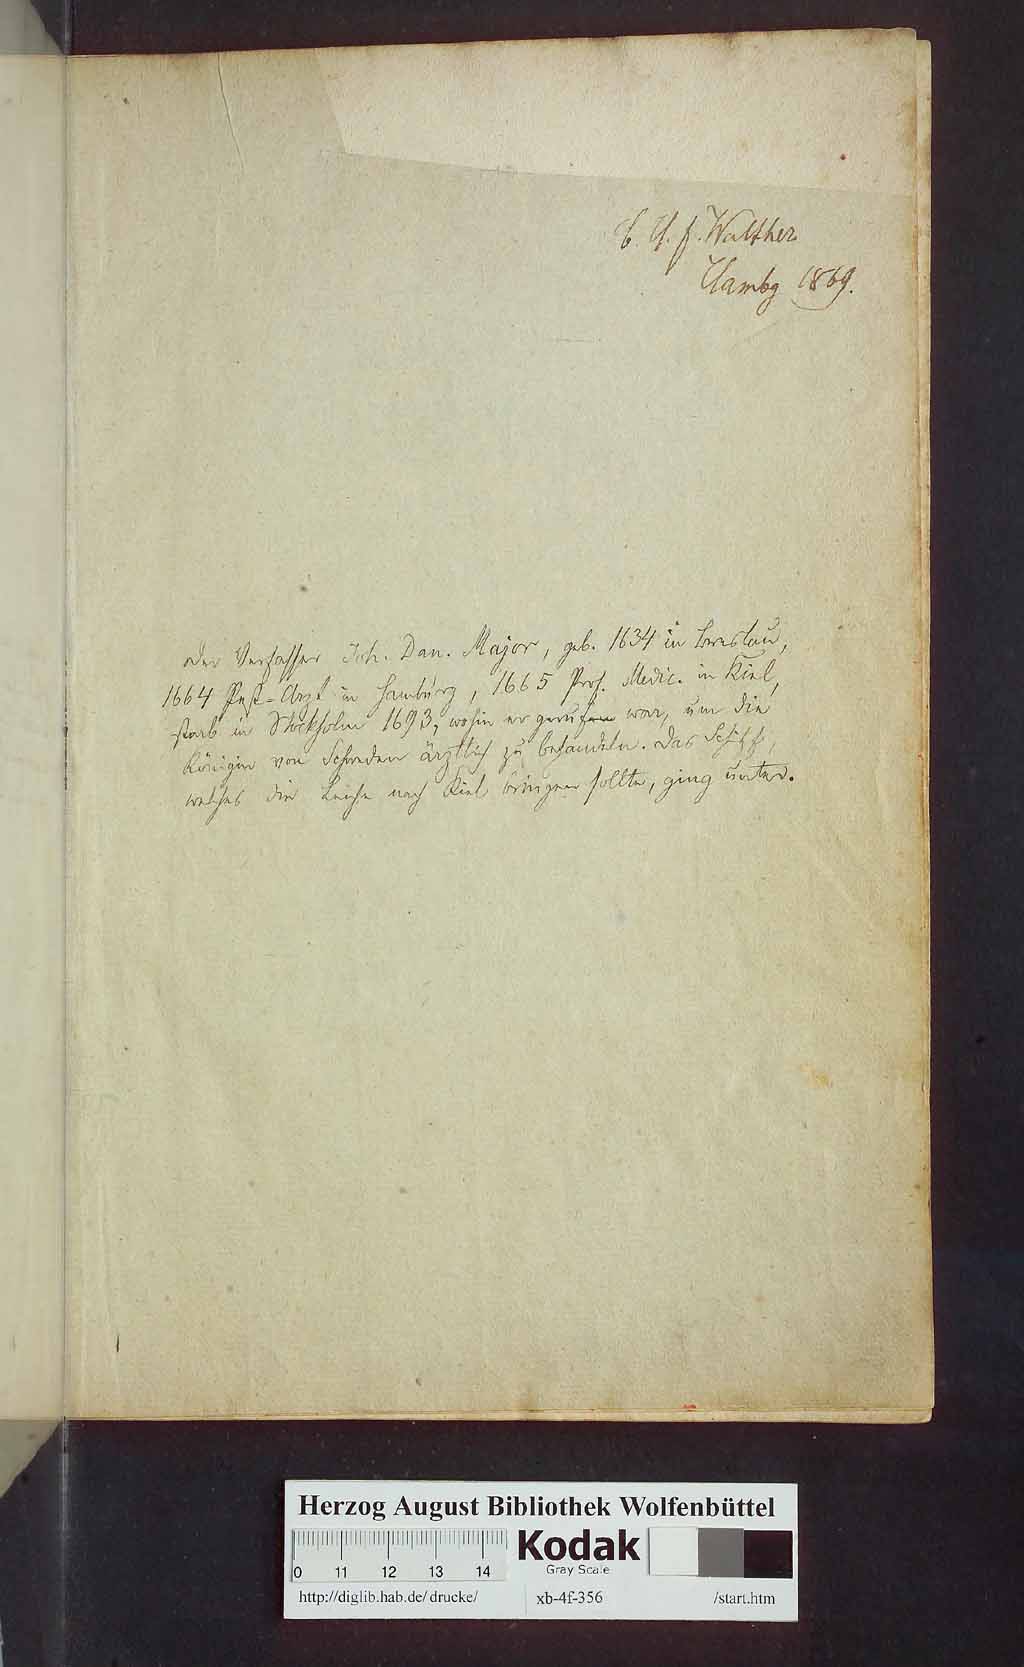 C. H. F. Walther
Hambg 1869.
Der Verfasser Joh. Dan. Major, geb. 1634 in Breslau,
1664 Pest-Arzt in Hamburg, 1665 Prof. Medic. in Kiel,
starb in Stockholm 1693, wohin er gerufen war, um die
Königin von Schweden ärztlich zu behandeln. Das Schiff,
welches die Leiche nach Kiel bringen sollte, ging unter.
Herzog August Bibliothek Wolfenbüttel
0 11 12 13 14
Kodak
Gray Scale
http://diglib.hab.de/drucke/ xb-4f-356 /start.htm